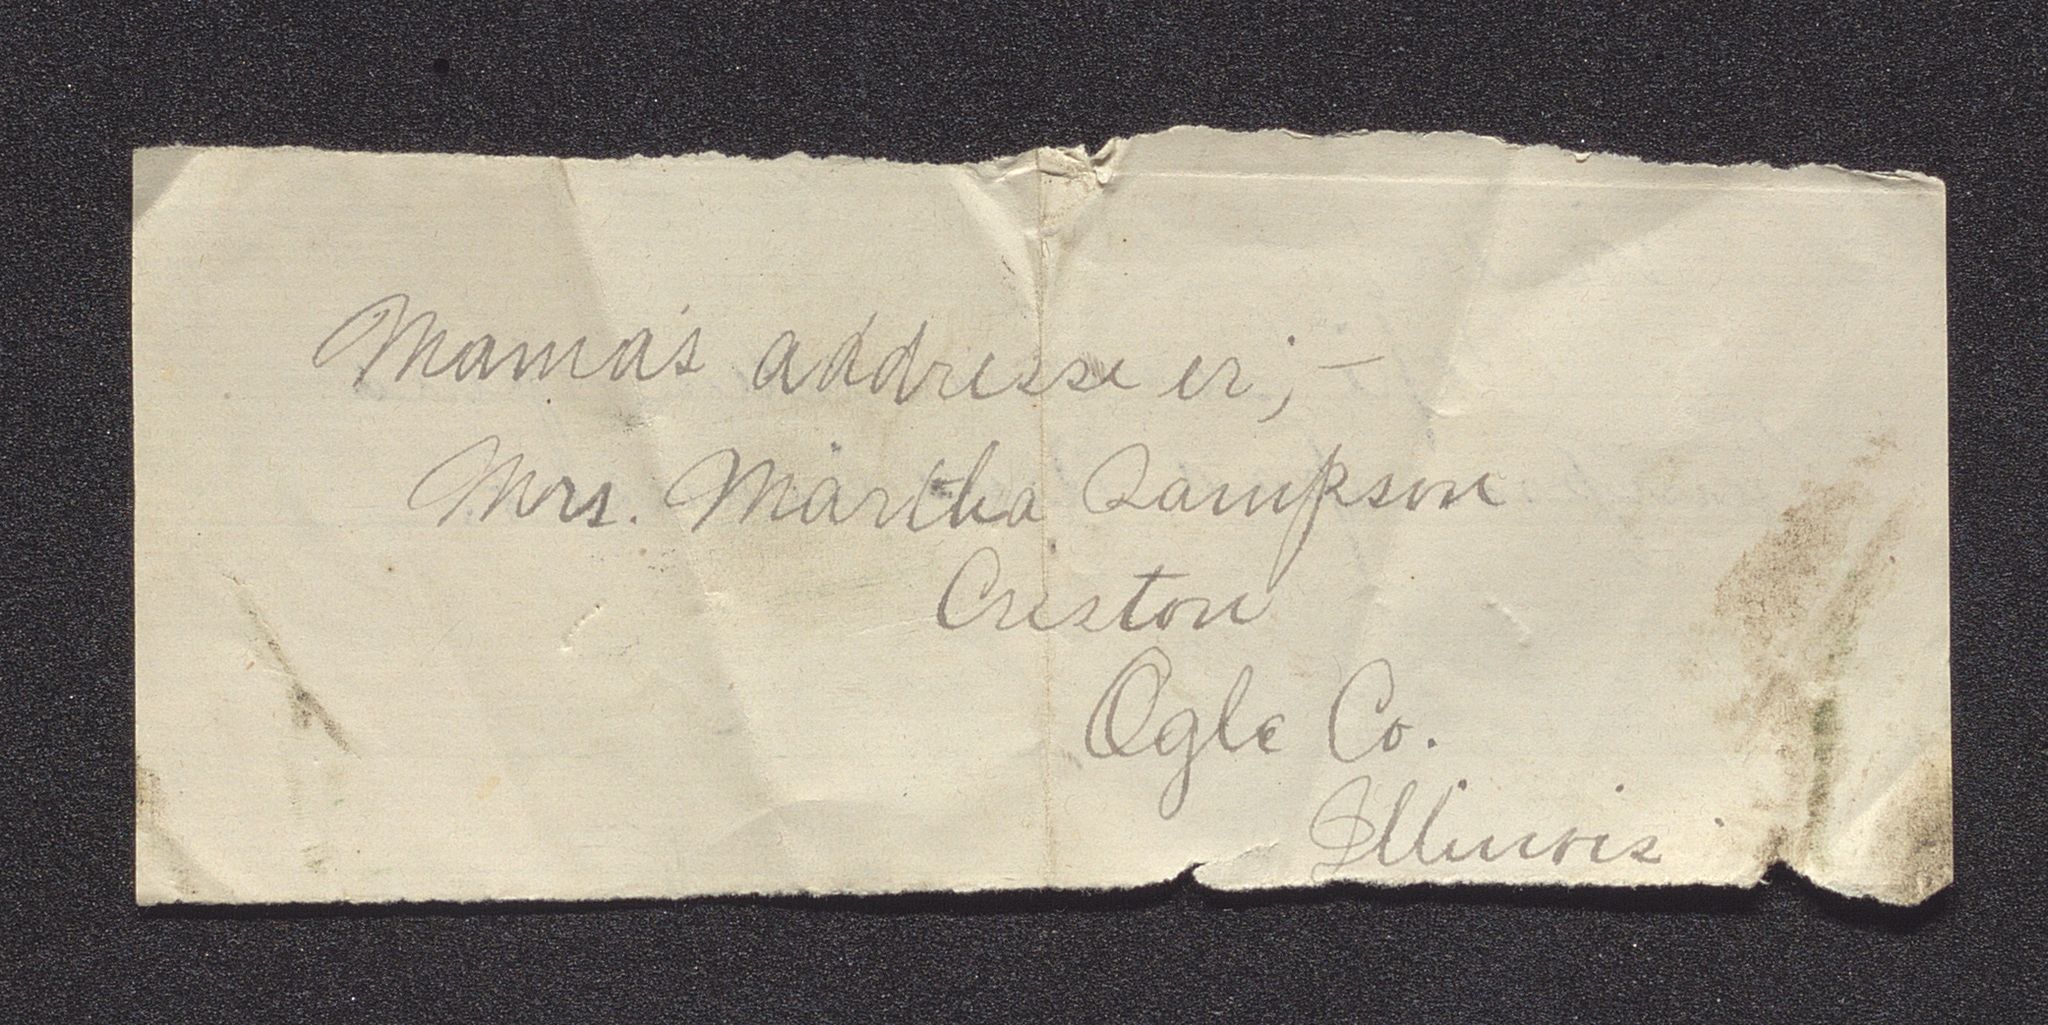 Mama's addresse er; –
Mrs. Martha Sampson
Creston
Ogle Co.
Illinois